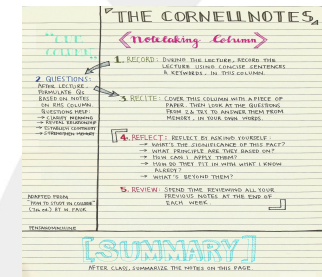 THE CORNELL NOTES
"CUE
COLUMN"
Notetaking Column
1. RECORD: DURING THE LECTURE, RECORD THE
LECTURE USING CONCISE SENTENCES
& KEYWORDS, IN THIS COLUMN.
2. QUESTIONS:
AFTER LECTURE,
FORMULATE Qs
BASED ON NOTES
ON RHS COLUMN
QUESTIONS HELP:
→ CLARIFY MEANING
→ REVEAL RELATIONSHIP
→ ESTABLISH CONTINUITY
→ STRENGTHEN MEMORY
3. RECITE: COVER THIS COLUMN WITH A PIECE OF
PAPER. THEN LOOK AT THE QUESTIONS
FROM 2 & TRY TO ANSWER THEM FROM
MEMORY, IN YOUR OWN WORDS.
4. REFLECT: REFLECT BY ASKING YOURSELF -
→ WHAT'S THE SIGNIFICANCE OF THIS FACT?
→ WHAT PRINCIPLE ARE THEY BASED ON?
→ HOW CAN I APPLY THEM?
→ HOW DO THEY FIT IN WITH WHAT I KNOW
ALREADY?
→ WHAT'S BEYOND THEM?
5. REVIEW: SPEND TIME REVIEWING ALL YOUR
PREVIOUS NOTES AT THE END OF
EACH WEEK.
ADAPTED FROM
"HOW TO STUDY IN COLLEGE"
BY W. PAUK
PENSANDMACHINE
[SUMMARY]
AFTER CLASS, SUMMARIZE THE NOTES ON THIS PAGE.